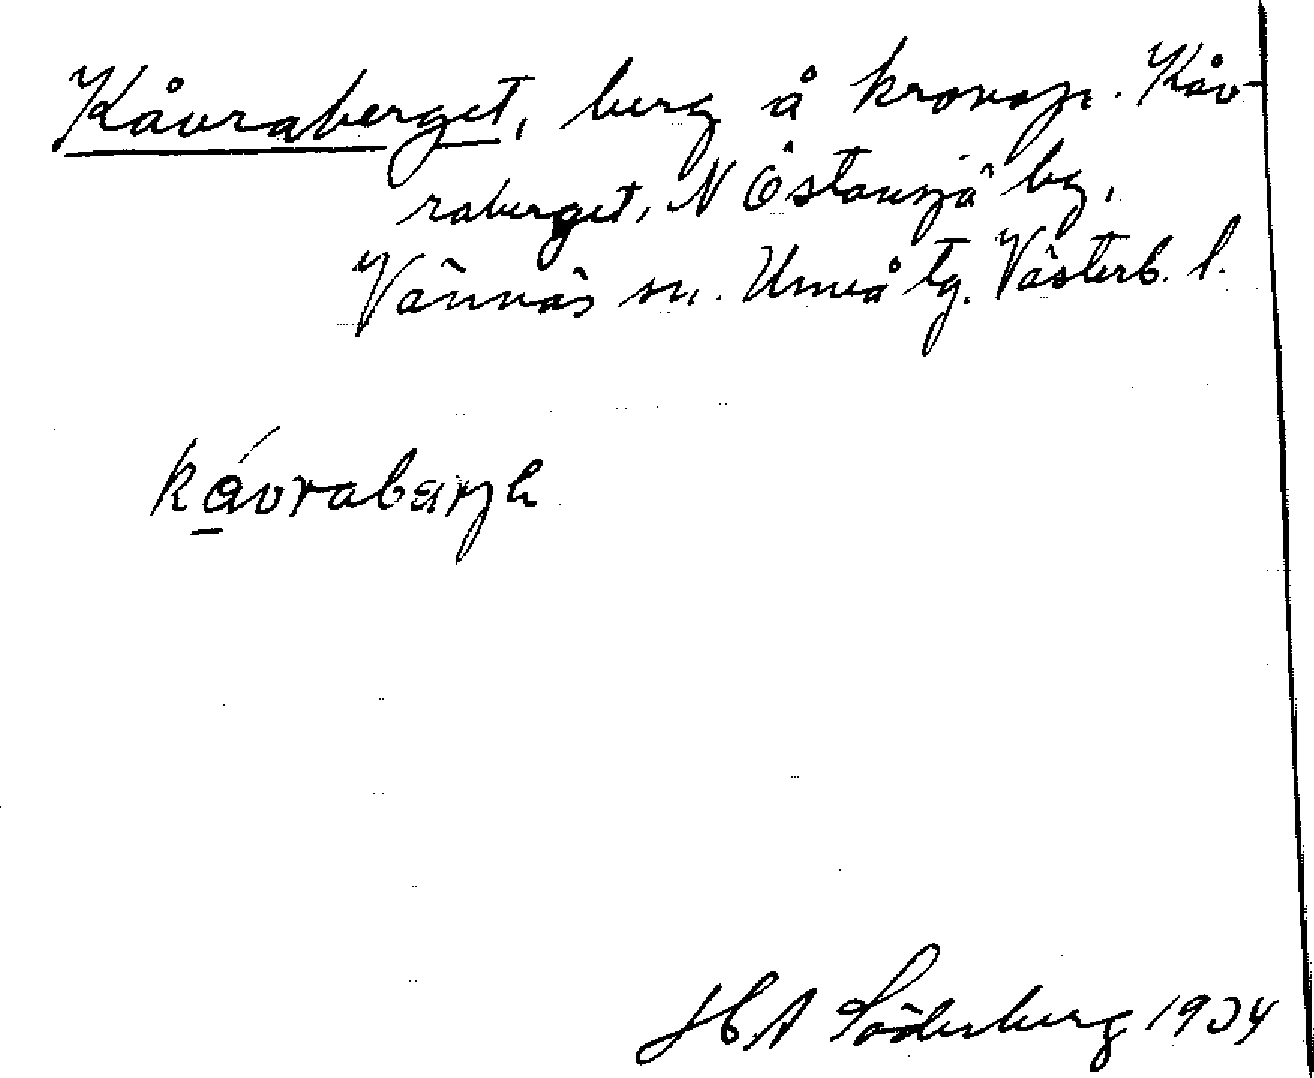 Kåvraberget, berg å kronop. Kåv-
raberget, N Östansjö by,
Vännäs sn. Umeå tg. Västerb. l.
kåvrabærjh
JHA Söderberg 1934